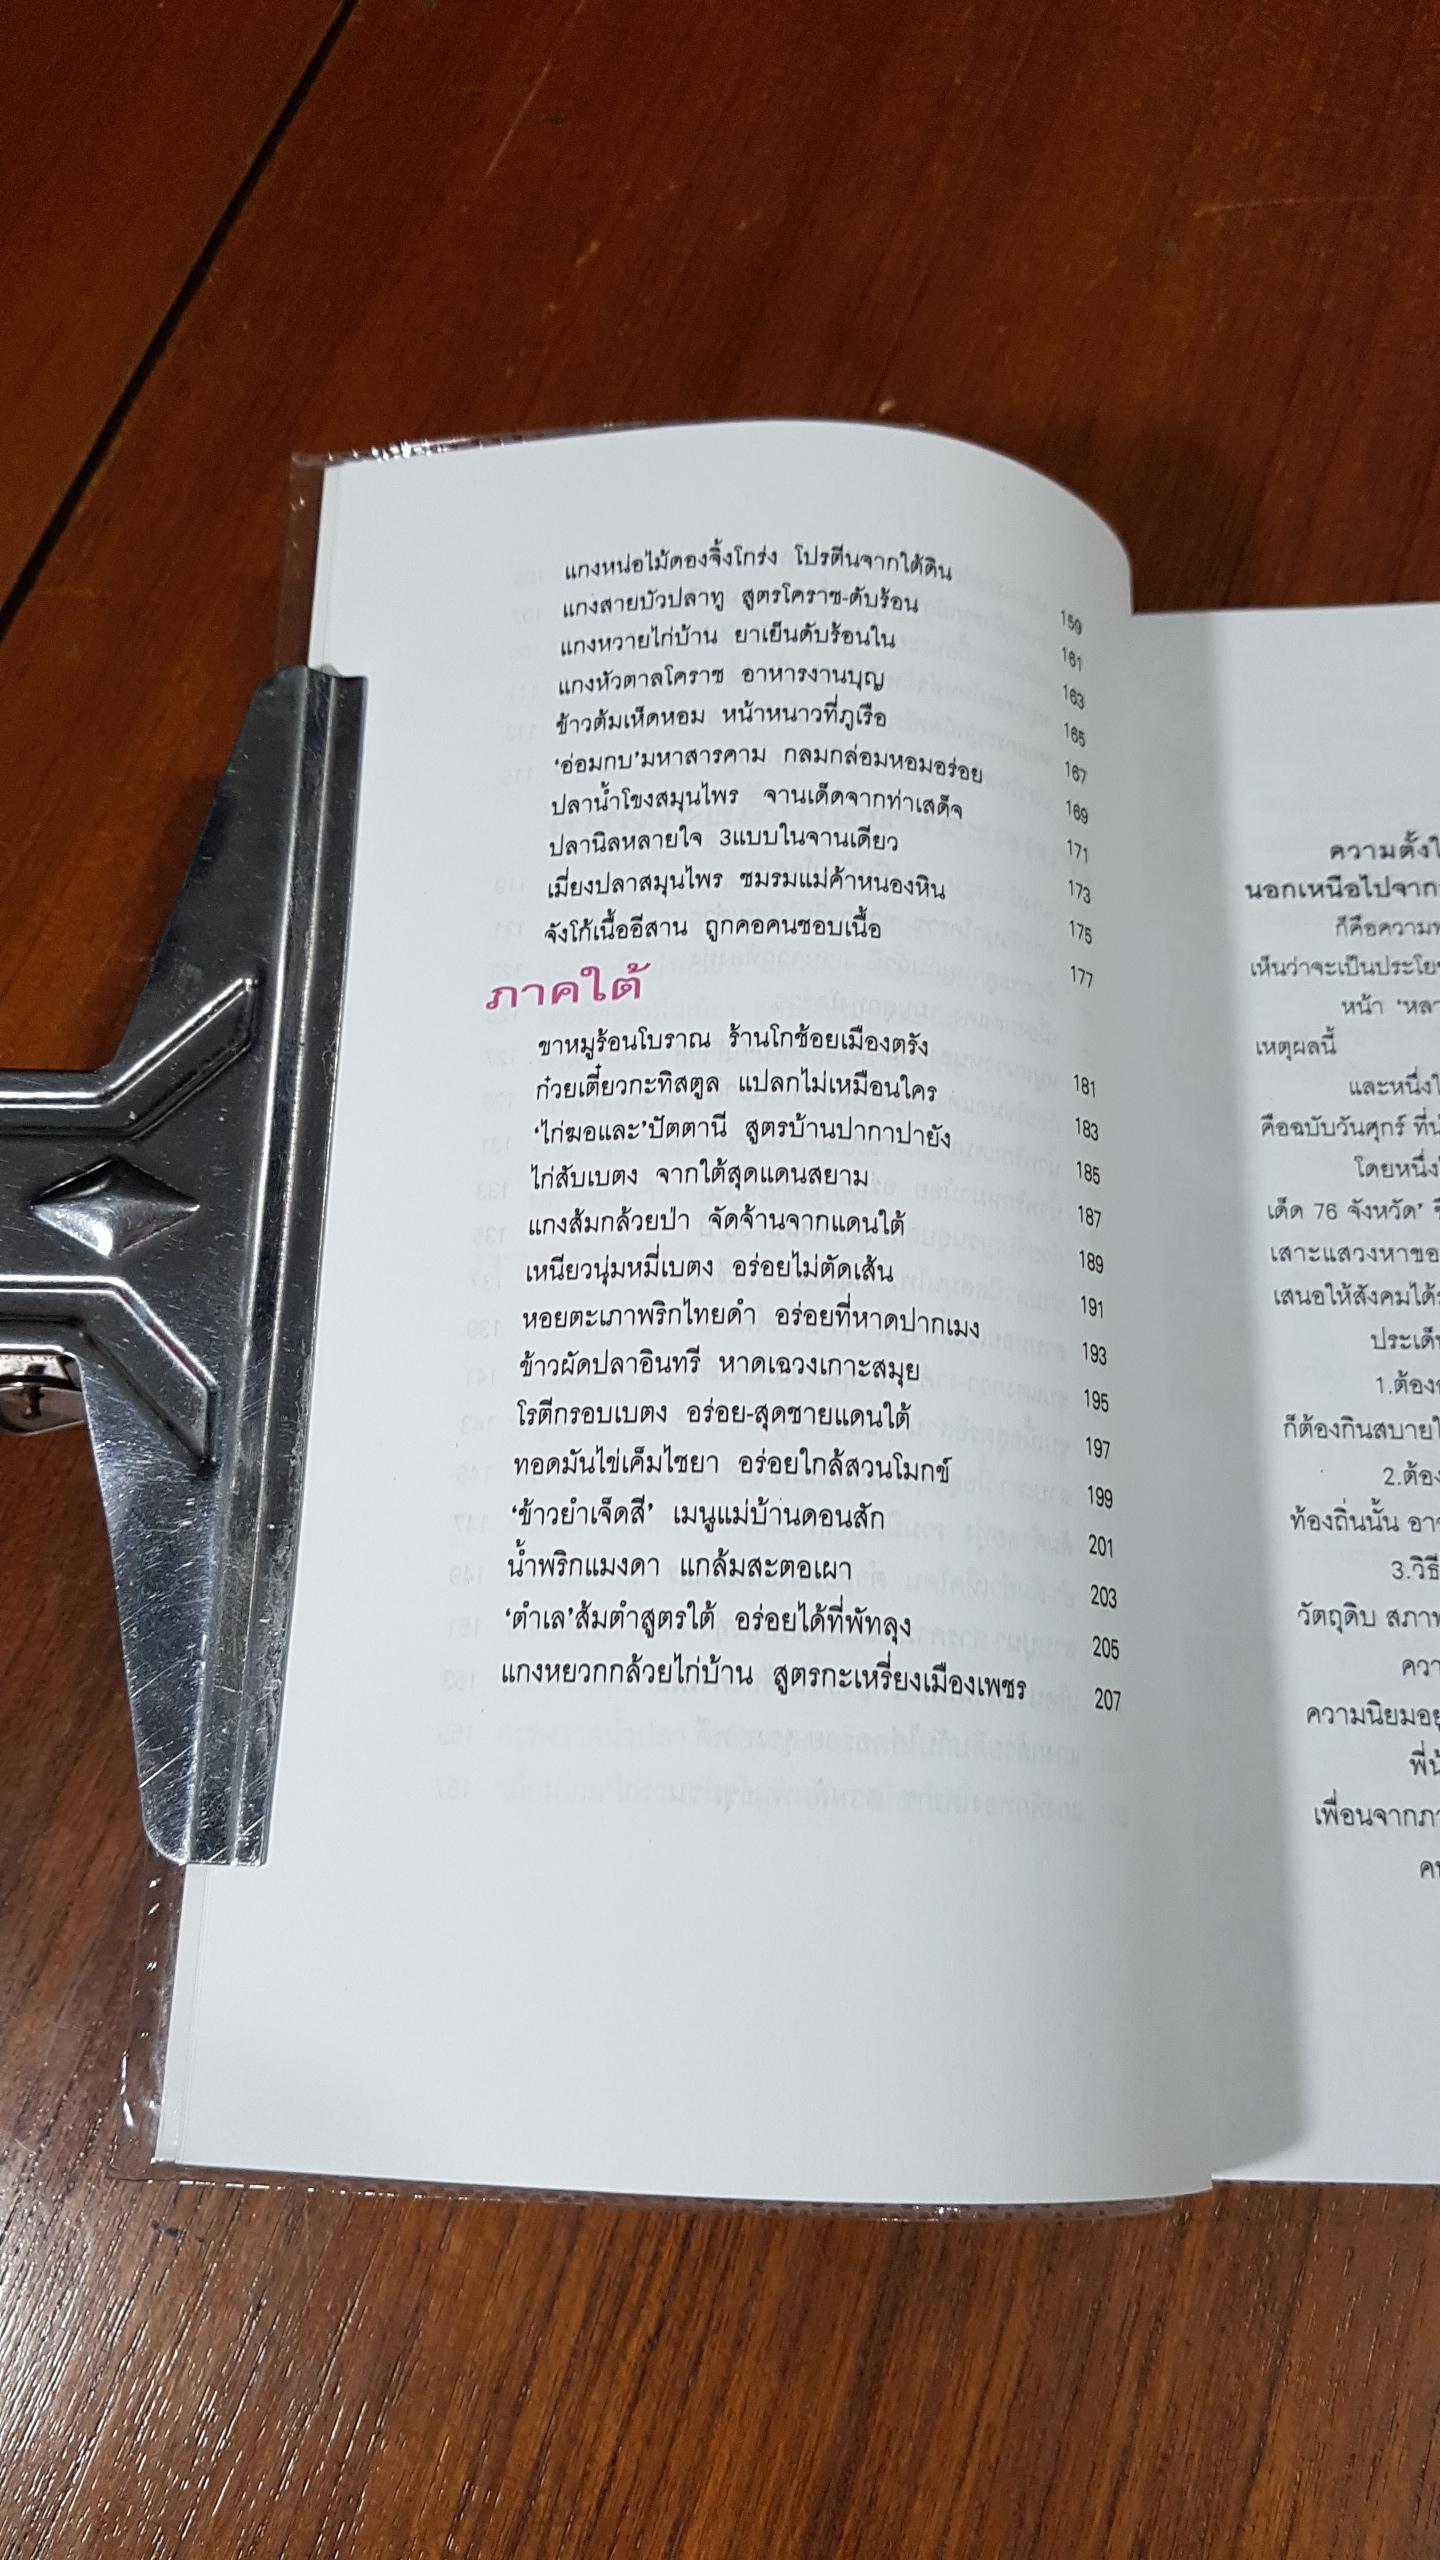 แกงหน่อไม้ดองจิ้งโกร่ง โปรตีนจากใต้ดิน 159
แกงสายบัวปลาทู สูตรโคราช-ดับร้อน 161
แกงหวายไก่บ้าน ยาเย็นดับร้อนใน 163
แกงหัวตาลโคราช อาหารงานบุญ 165
ข้าวต้มเห็ดหอม หน้าหนาวที่ภูเรือ 167
‘อ่อมกบ’มหาสารคาม กลมกล่อมหอมอร่อย 169
ปลาน้ำโขงสมุนไพร จานเด็ดจากท่าเสด็จ 171
ปลานิลหลายใจ 3แบบในจานเดียว 173
เมี่ยงปลาสมุนไพร ชมรมแม่ค้าหนองหิน 175
จังโก้เนื้ออีสาน ถูกคอคนชอบเนื้อ 177
ภาคใต้
ขาหมูร้อนโบราณ ร้านโกช้อยเมืองตรัง 181
ก๋วยเตี๋ยวกะทิสตูล แปลกไม่เหมือนใคร 183
‘ไก่ฆอและ’ปัตตานี สูตรบ้านปากาปายัง 185
ไก่สับเบตง จากใต้สุดแดนสยาม 187
แกงส้มกล้วยป่า จัดจ้านจากแดนใต้ 189
เหนียวนุ่มหมี่เบตง อร่อยไม่ตัดเส้น 191
หอยตะเภาพริกไทยดำ อร่อยที่หาดปากเมง 193
ข้าวผัดปลาอินทรี หาดเฉวงเกาะสมุย 195
โรตีกรอบเบตง อร่อย-สุดชายแดนใต้ 197
ทอดมันไข่เค็มไชยา อร่อยใกล้สวนโมกข์ 199
‘ข้าวยำเจ็ดสี’ เมนูแม่บ้านดอนสัก 201
น้ำพริกแมงดา แกล้มสะตอเผา 203
‘ตำเล’ส้มตำสูตรใต้ อร่อยได้ที่พัทลุง 205
แกงหยวกกล้วยไก่บ้าน สูตรกะเหรี่ยงเมืองเพชร 207
ความตั้งใ
นอกเหนือไปจาก
ก็คือความ
เห็นว่าจะเป็นประโย
หน้า ‘หลา
เหตุผลนี้
และหนึ่งใ
คือฉบับวันศุกร์ ที่น
โดยหนึ่งใ
เด็ด 76 จังหวัด’
เสาะแสวงหาขอ
เสนอให้สังคมได้
ประเด็
1.ต้อง
ก็ต้องกินสบายใ
2.ต้อง
ท้องถิ่นนั้น อา
3.วิธี
วัตถุดิบ สภา
ควา
ความนิยมอยู
พี่น
เพื่อนจากภา
ค